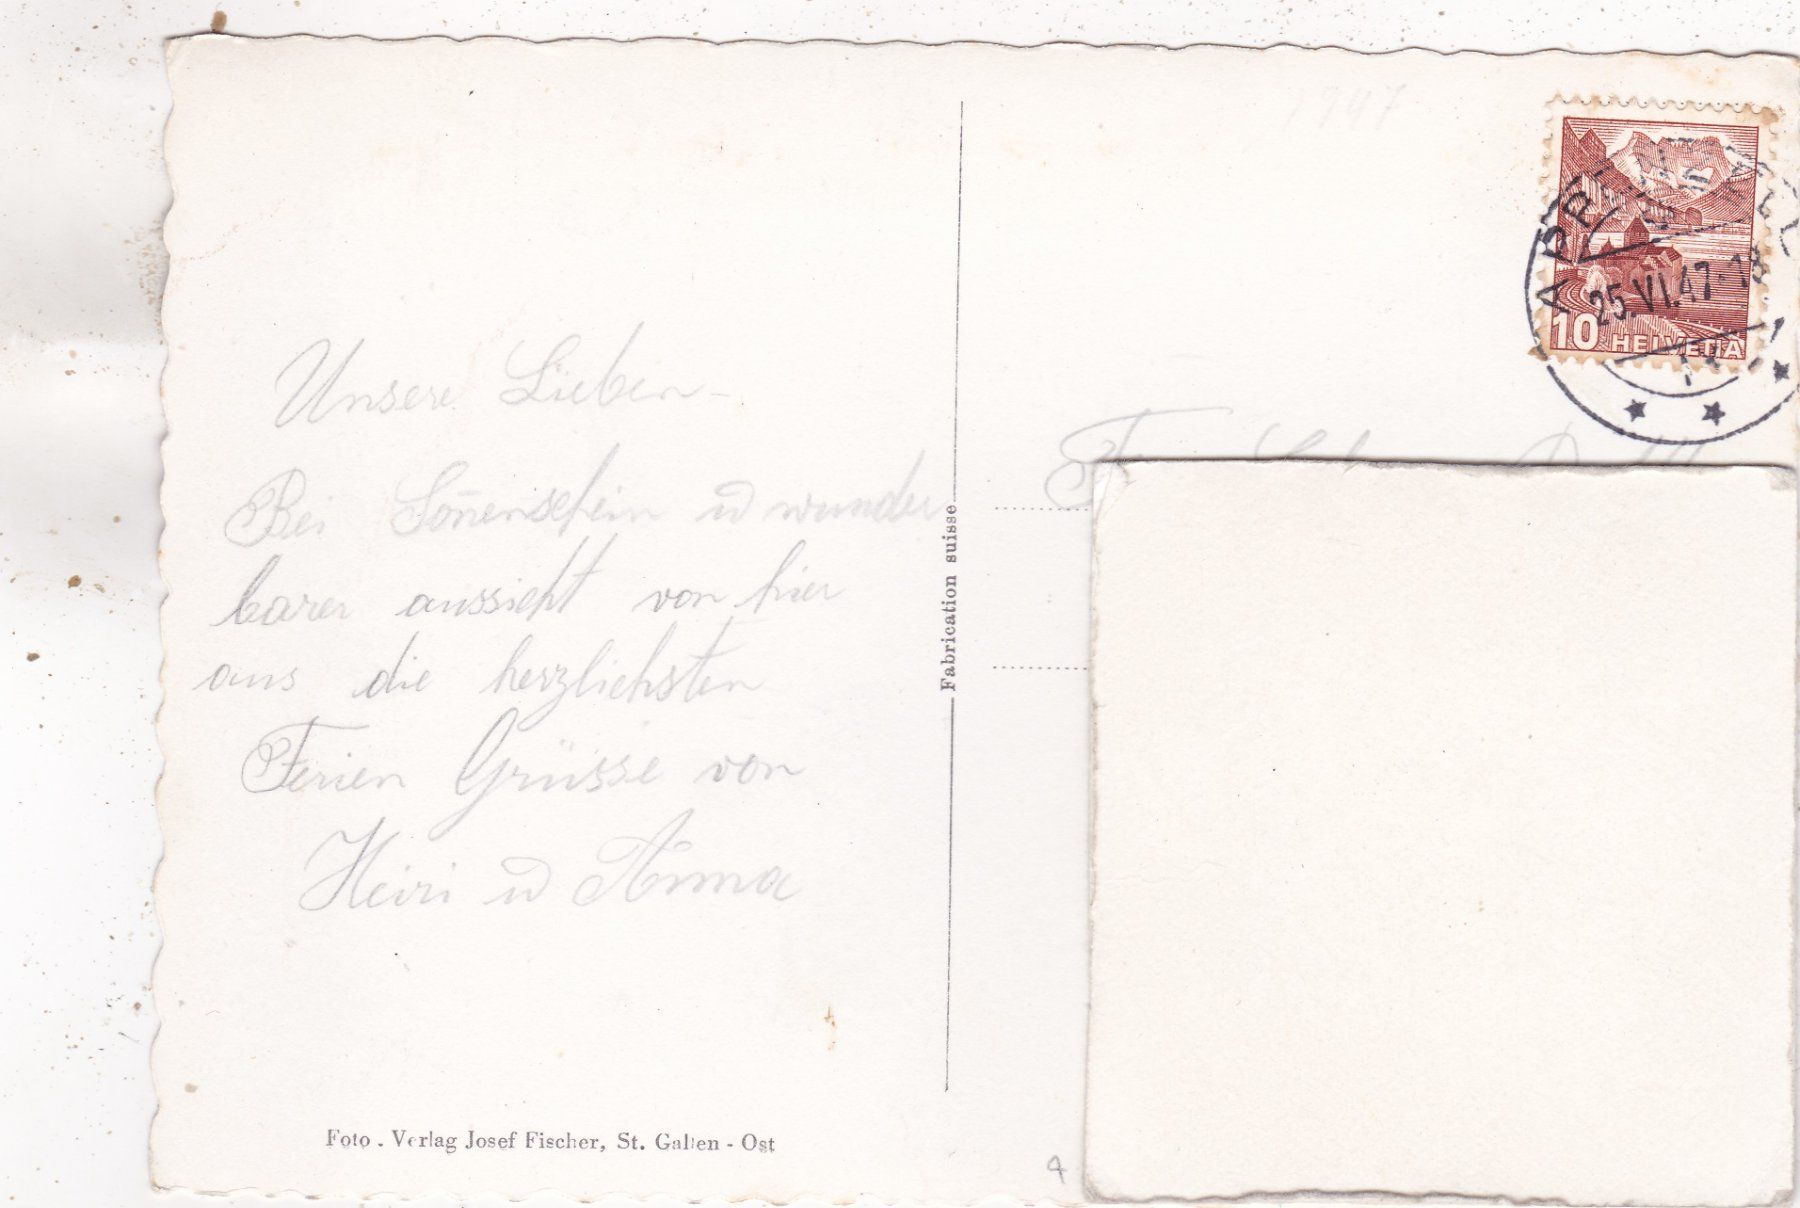 1947
Unsere Lieben -
Bei Soñenschein u wunder
barer aussicht von hier
aus die herzlichsten
Ferien Grüsse von
Heiri u Anna
Foto - Verlag Josef Fischer, St. Gallen - Ost
Fabrication suisse
APPENZELL
25.VI.47-18
10 HELVETIA